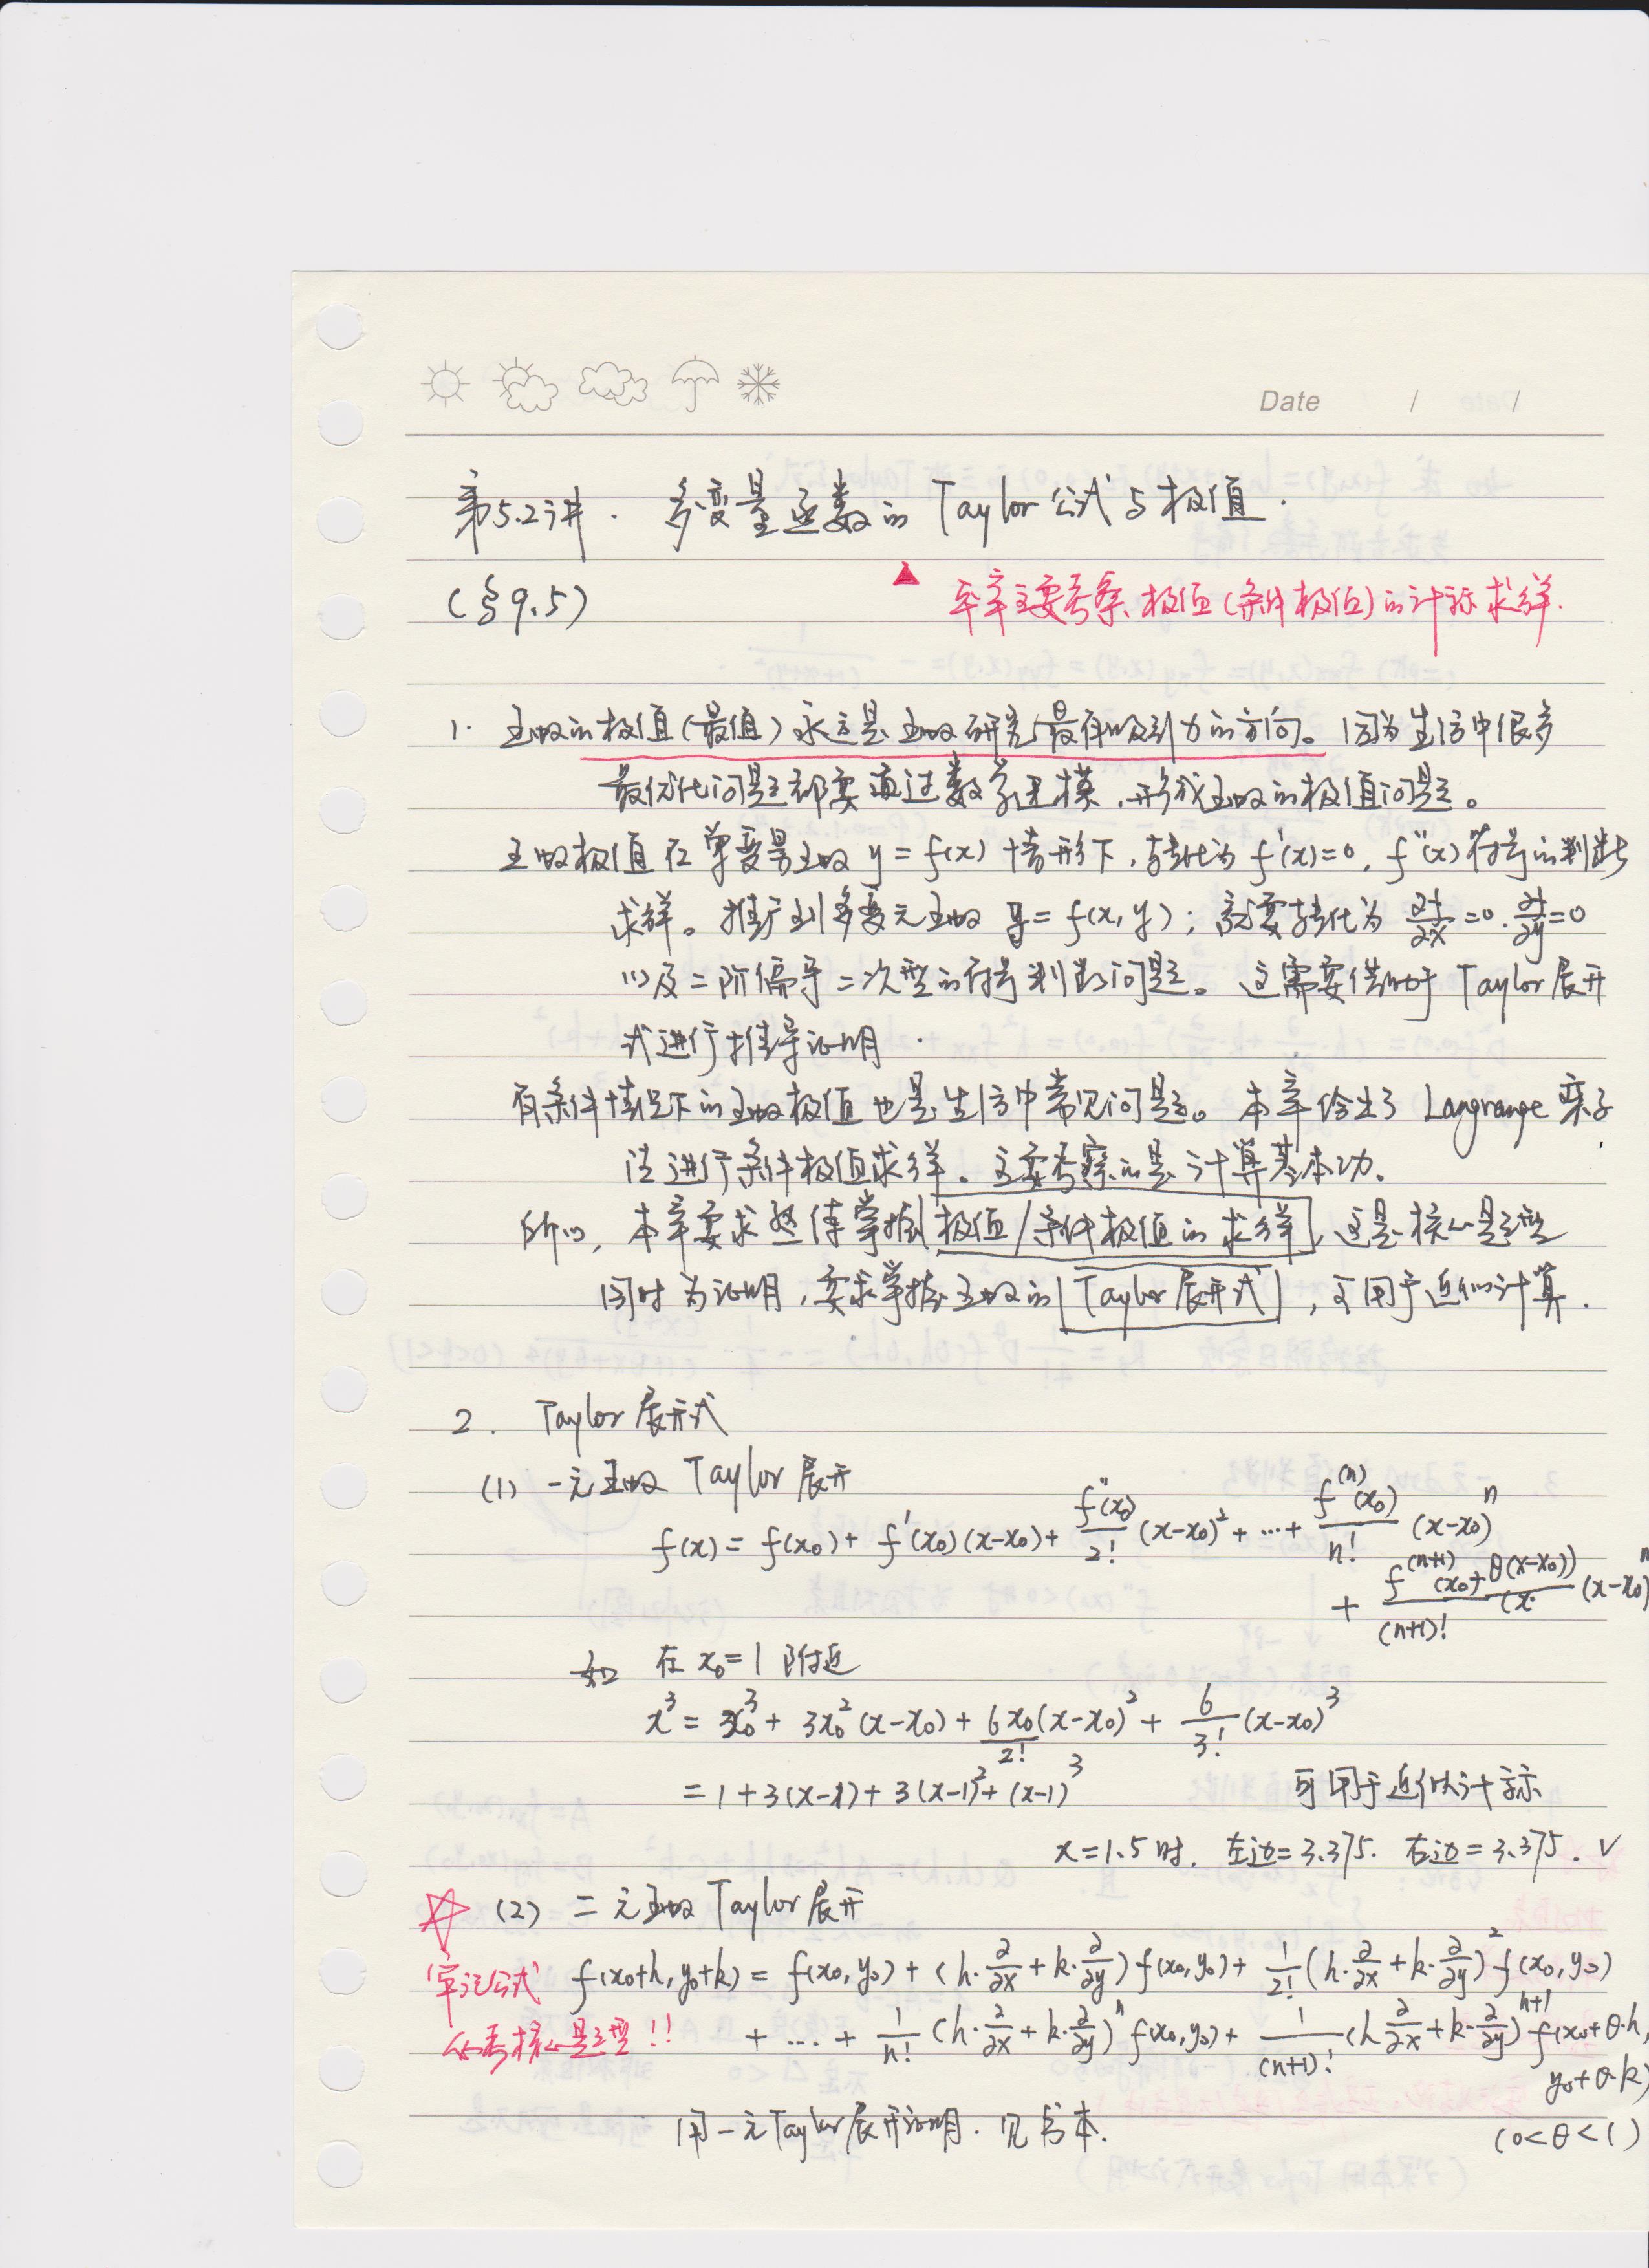 Date / /
第5.2讲. 多变量函数的Taylor公式与极值.
(§9.5)
▲ 本章主要考察极值(条件极值)的计算求解.
1. 函数的极值(最值)永远是函数研究最有吸引力的方向。因为生活中很多
最优化问题都要通过数学建模,形成函数的极值问题。
函数极值在单变量函数 y = f(x) 情形下,转化为 f'(x)=0, f''(x)符号的判断
求解。推广到多变元函数 z = f(x,y); 就要转化为 ∂f/∂x =0. ∂f/∂y =0
以及二阶偏导二次型的符号判断问题。这需要借助于Taylor展开
式进行推导证明.
有条件情况下的函数极值也是生活中常见问题。本章给出了Langrange乘子
法进行条件极值求解。主要考察的是计算基本功.
所以, 本章要求熟练掌握极值/条件极值的求解, 这是核心题型
同时为证明,要求掌握函数的Taylor展开式,可用于近似计算.
2. Taylor展开式
(1) 一元函数Taylor展开
f(x) = f(x₀) + f'(x₀)(x-x₀) + f''(x₀)/2! (x-x₀)² + ... + f⁽ⁿ⁾(x₀)/n! (x-x₀)ⁿ
+ f⁽ⁿ⁺¹⁾(x₀+θ(x-x₀))/(n+1)! (x-x₀)ⁿ
如 在 x₀=1 附近
x³ = x₀³ + 3x₀²(x-x₀) + 6x₀/2! (x-x₀)² + 6/3! (x-x₀)³
= 1+3(x-1)+3(x-1)²+(x-1)³ 可用于近似计算
x=1.5时. 左边=3.375. 右边=3.375. √
☆ (2) 二元函数Taylor展开
牢记公式 f(x₀+h, y₀+k) = f(x₀,y₀) + (h·∂/∂x + k·∂/∂y) f(x₀,y₀) + 1/2! (h·∂/∂x + k·∂/∂y)² f(x₀,y₀)
必考核心题型!! + ... + 1/n! (h·∂/∂x + k·∂/∂y)ⁿ f(x₀,y₀) + 1/(n+1)! (h ∂/∂x + k·∂/∂y)ⁿ⁺¹ f(x₀+θ·h,
y₀+θ·k)
用一元Taylor展开证明. 见书本. (0<θ<1)